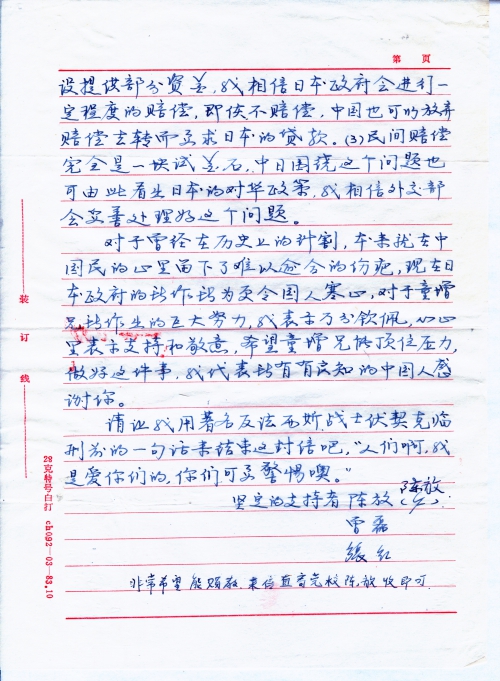 第 页
设提供部分资金，我相信日本政府会进行一
定程度的赔偿，即使不赔偿，中国也可以放弃
赔偿去转而要求日本的贷款。(3)民间赔偿
完全是一块试金石，中日围绕这个问题也
可由此看出日本的对华政策，我相信外交部
会妥善处理好这个问题。
对于曾经在历史上的创，本来就在中
国民的心里留下了难以愈合的伤疤，现在日
本政府的所作所为更令国人寒心，对于童增
兄所作出的巨大努力，我表示万分钦佩，从心
里表示支持和敬意，希望童增兄能顶住压力，
做好这件事，我代表所有有良知的中国人感
谢你。
请让我用著名反法西斯战士伏契克临
刑前的一句话来结束这封信吧，“人们啊，我
是爱你们的，你们可要警惕噢。”
坚定的支持者 陈放 陈放
曾磊
红
非常希望能 来信 校陈放收即可
装订线
28克特号白打 ch092-03-83.10